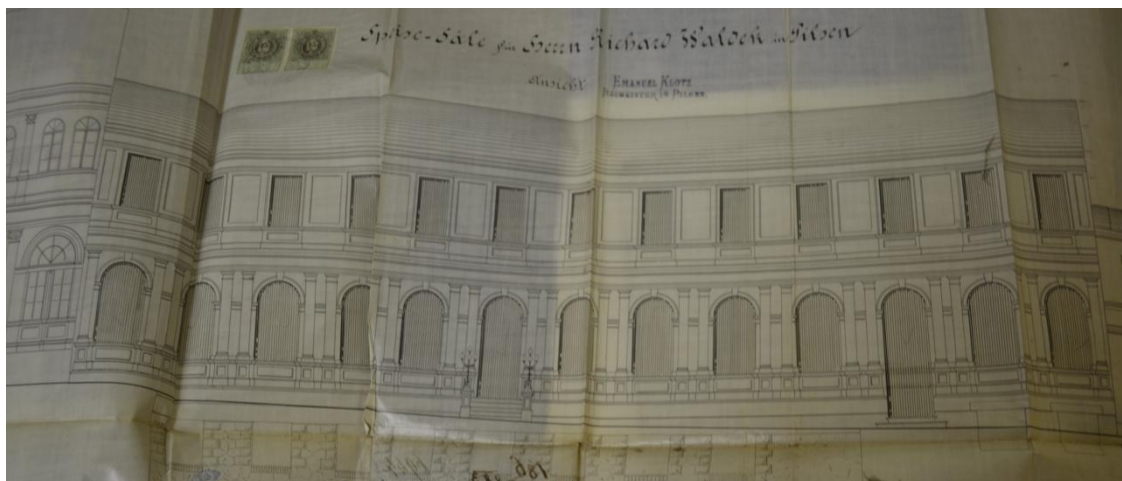 Speise-Säle für Herrn Richard Walden in Pilsen
Ansicht
EMANUEL KLOTZ
BAUMEISTER IN PILSEN